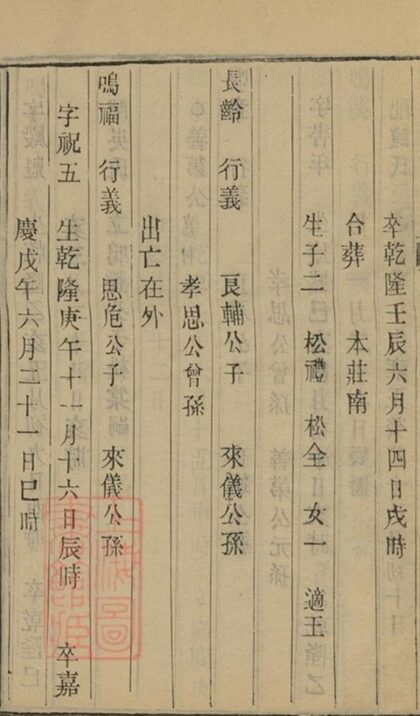 卒乾隆壬辰六月十四日戌時
合葬　本莊南
生子二　松禮　松全　女一　適王
長齡　行義　良輔公子　來儀公孫
孝思公曾孫
出亡在外
鳴福　行義　思危公子　來儀公孫
字祝五　生乾隆庚午十一月十六日辰時　卒嘉
慶戊午六月二十一日巳時